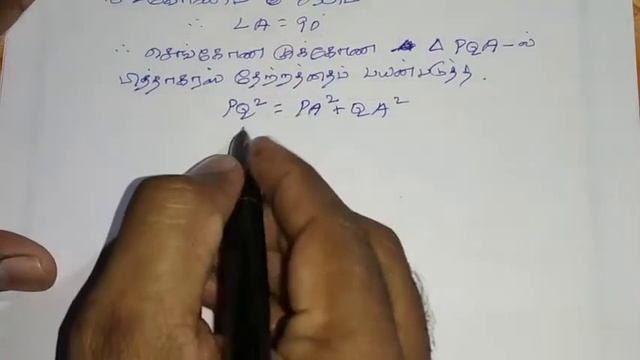 ∴ ∠A = 90°
∴ செங்கோண முக்கோண Δ PQA-ல்
பித்தாகரஸ் தேற்றத்தைப் பயன்படுத்த.
PQ² = PA² + QA²